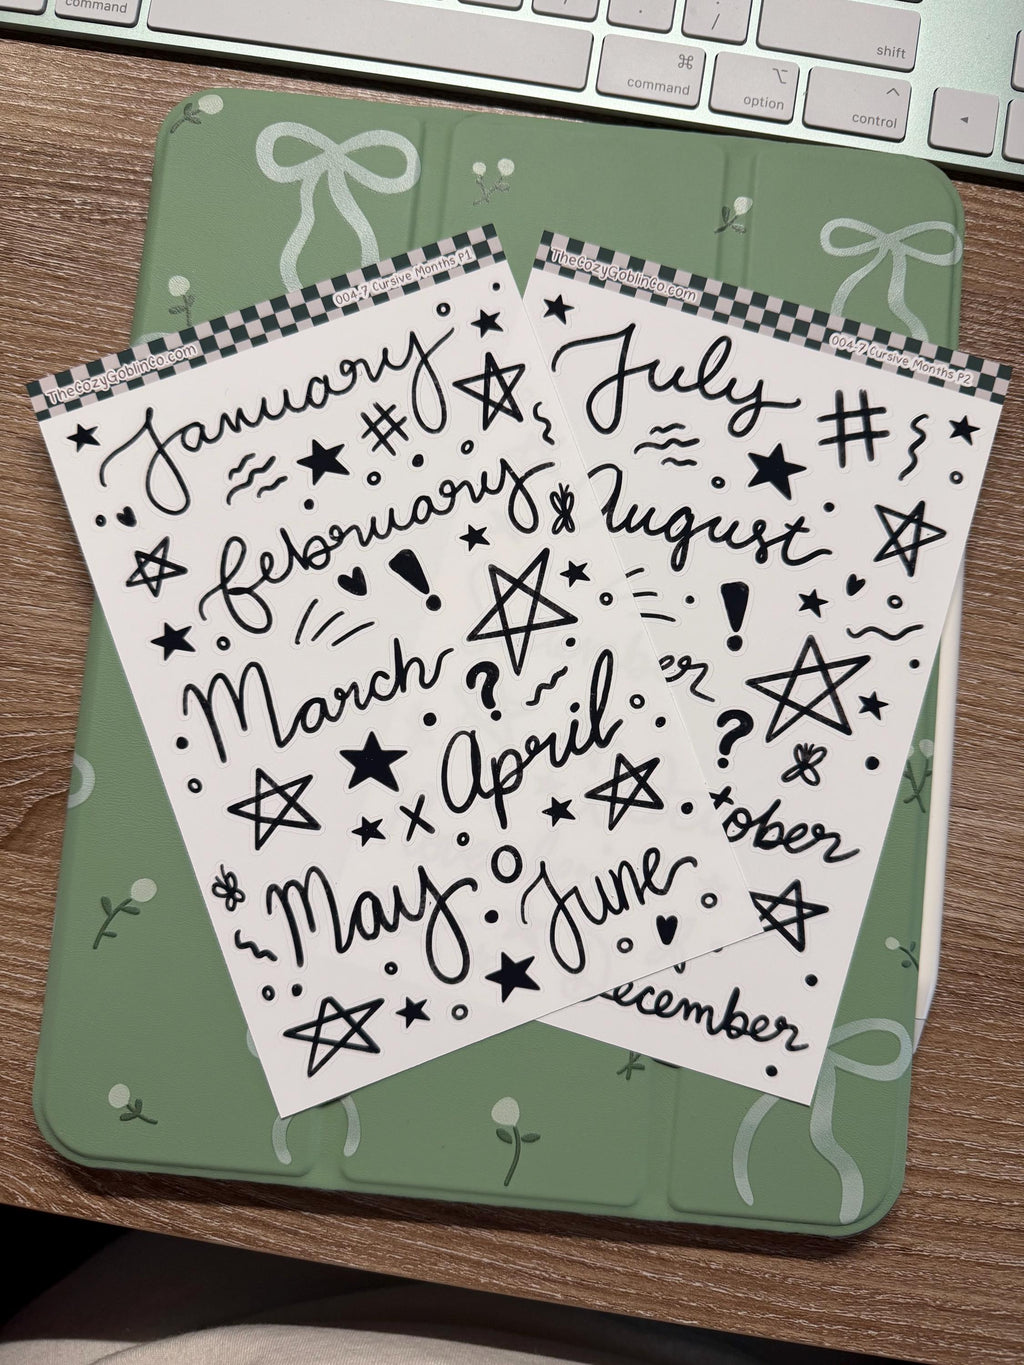 command
⌘
command
⌥
option
/
shift
^
control
◂
TheCozyGoblinCo.com
004-7 Cursive Months P1
January
#
february
!
March
?
April
x
May
June
TheCozyGoblinCo.com
004-7 Cursive Months P2
July
#
August
!
er
?
ober
ecember